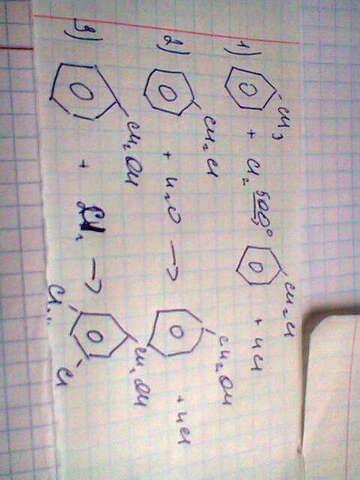 1) CH₃ + Cl₂ 500° CH₂Cl + HCl
2) CH₂Cl + H₂O → CH₂OH + HCl
3) CH₂OH + Cl₂ → Cl... Cl CH₂OH